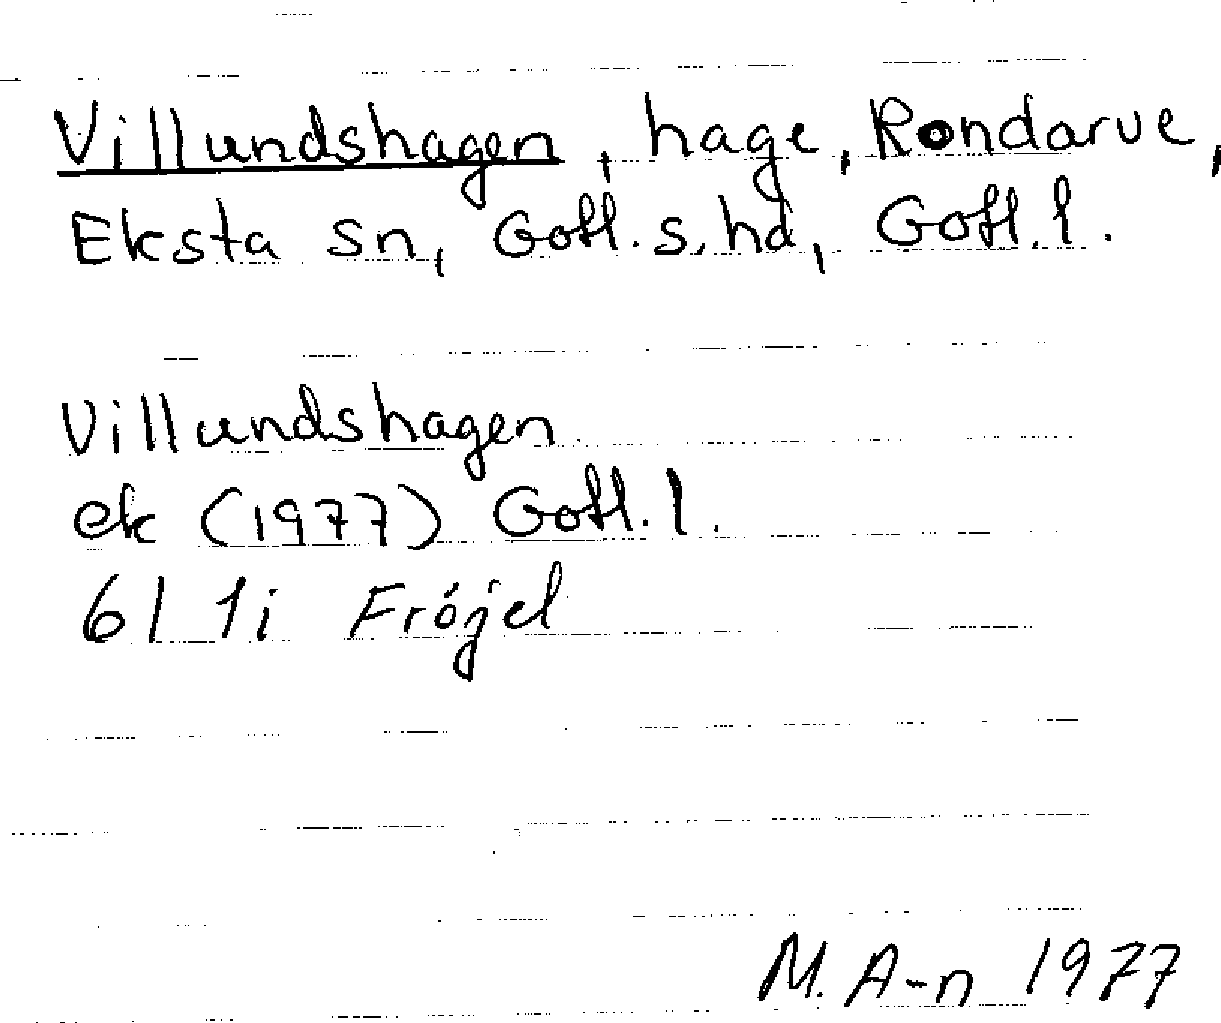 Villundshagen, hage, Rondarve,
Eksta sn, Gotl. s. hd, Gotl. l.
Villundshagen
ek (1977) Gotl. l.
6I 1i Fröjel
M. A-n 1977